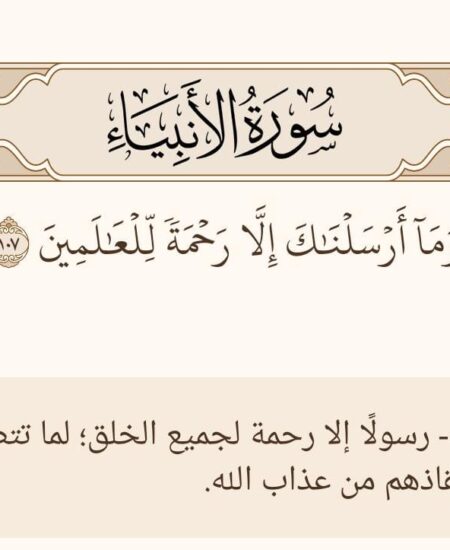 سُورَةُ الأَنبِيَاءِ
أَرۡسَلۡنَٰكَ إِلَّا رَحۡمَةٗ لِّلۡعَٰلَمِينَ ١٠٧
- رسولًا إلا رحمة لجميع الخلق؛ لما
من عذاب الله.